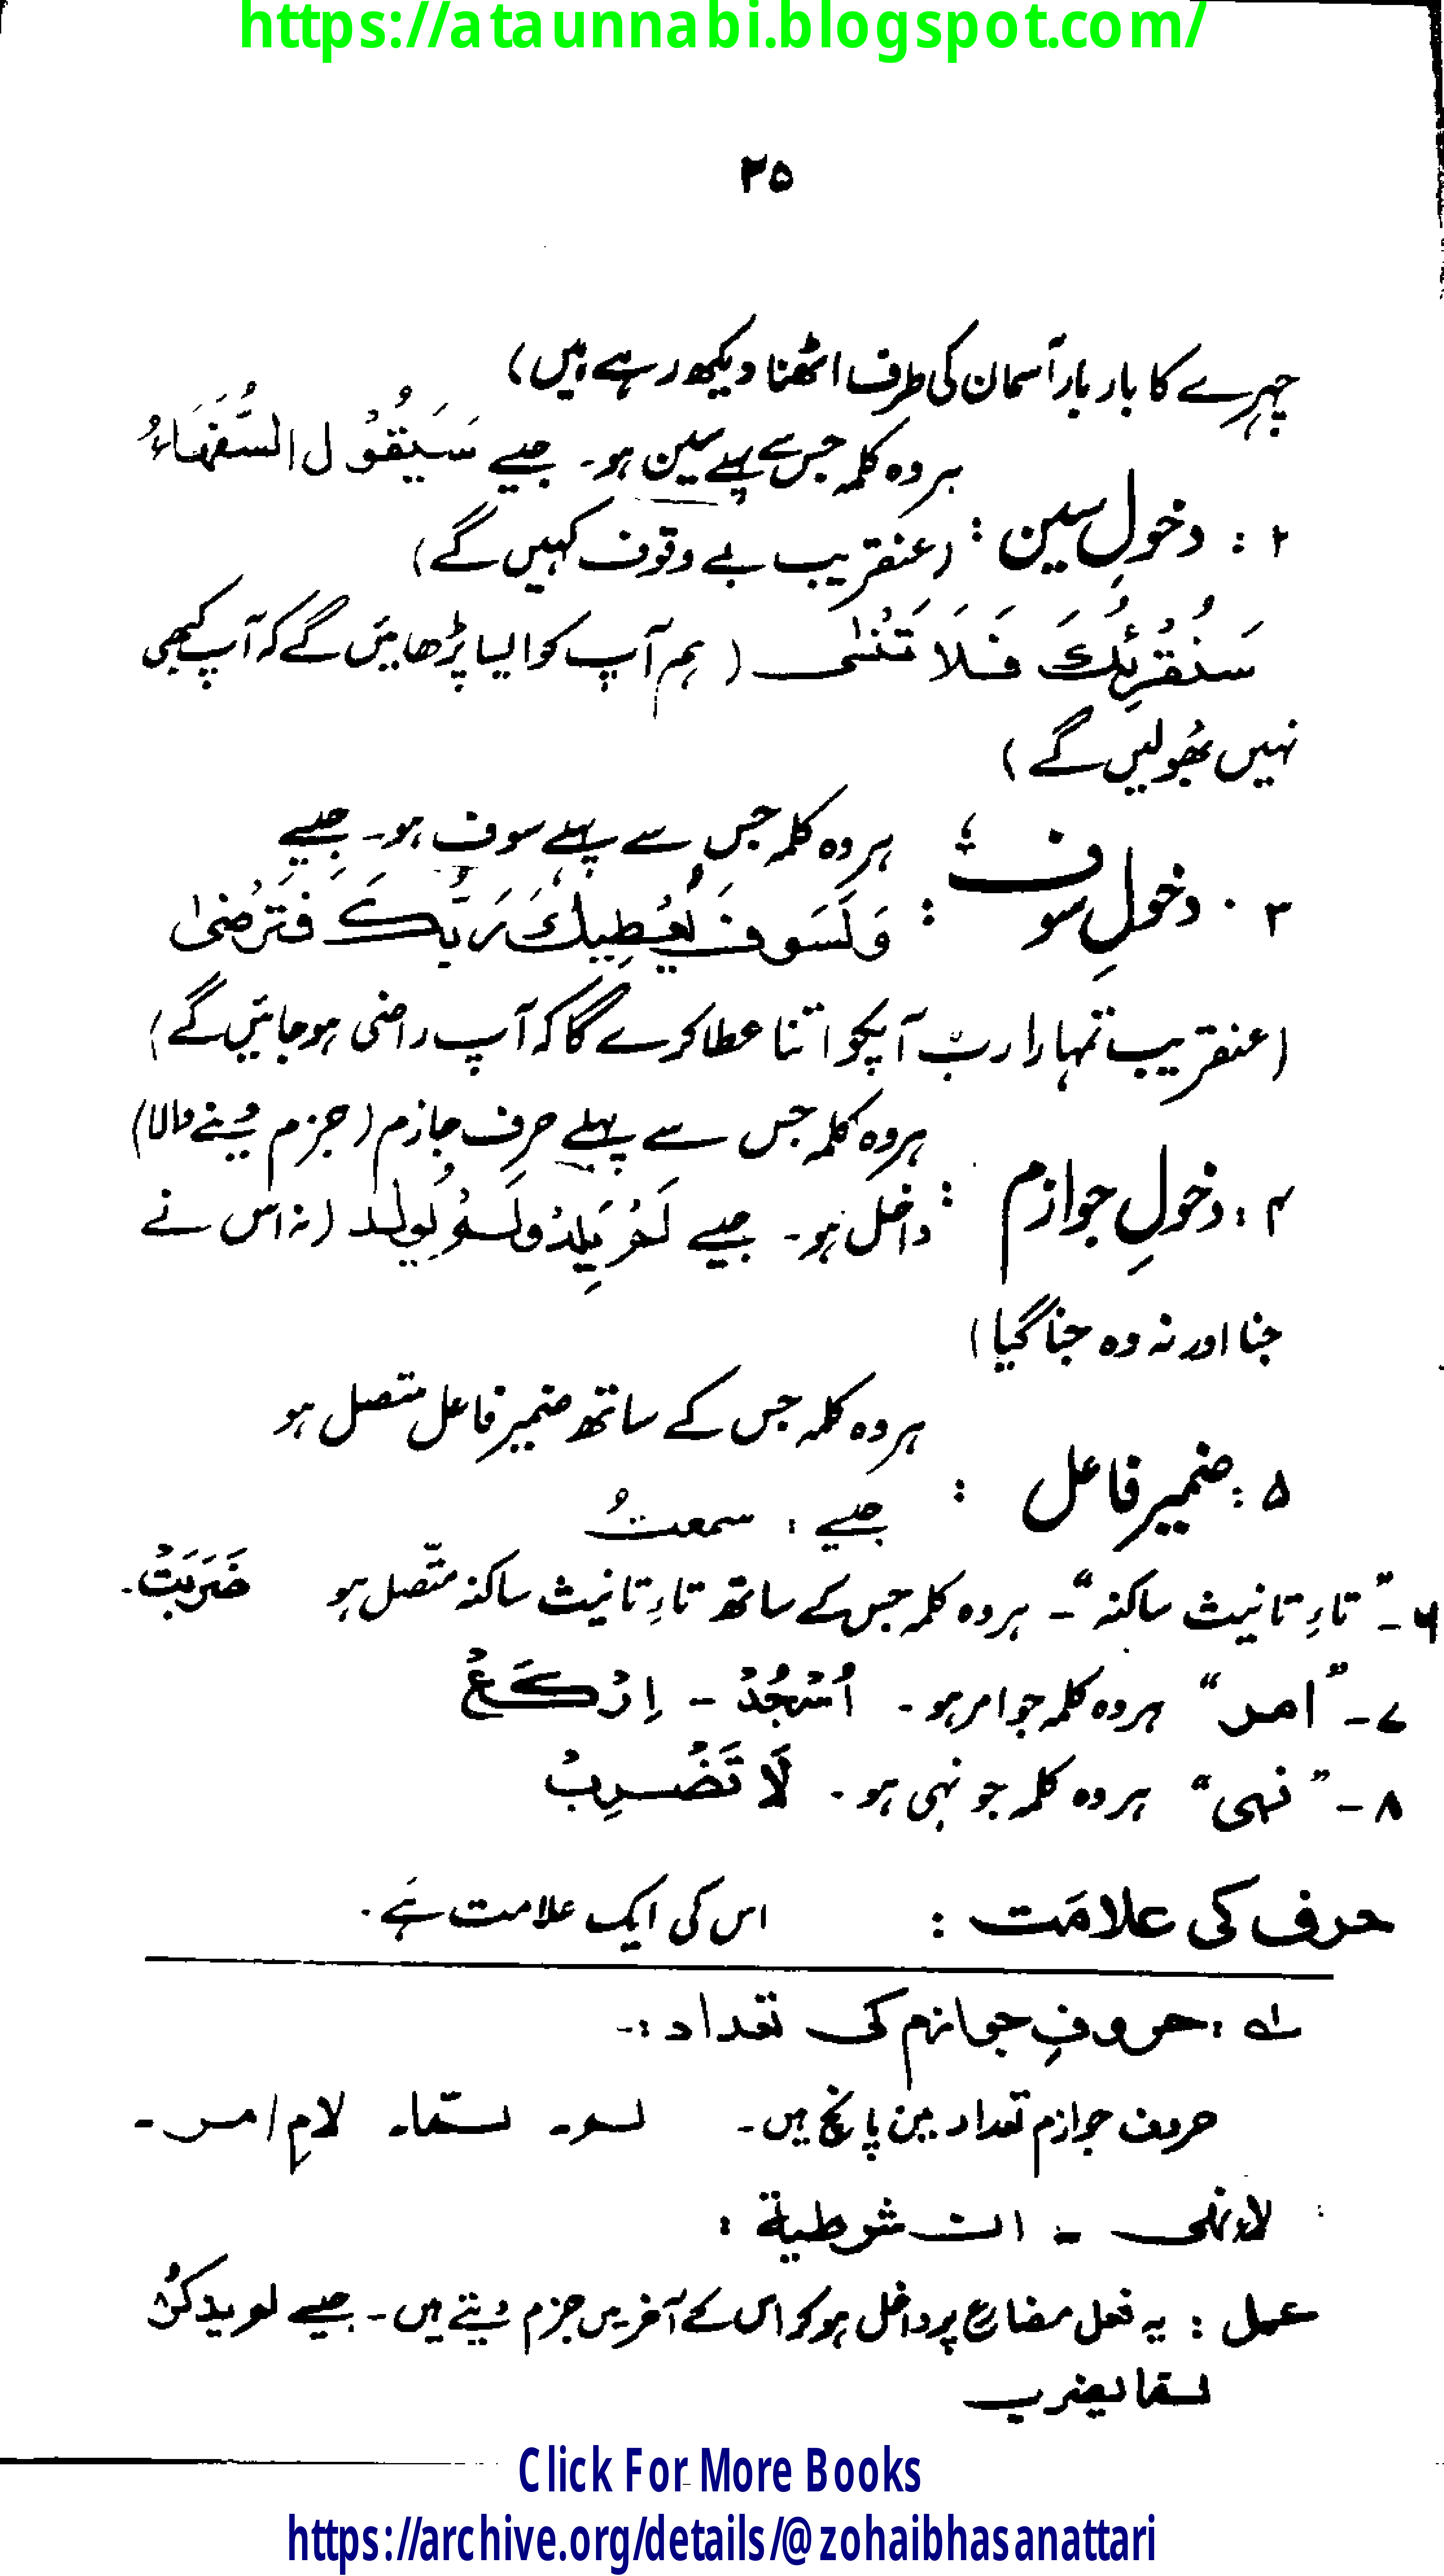 https://ataunnabi.blogspot.com/
۲۵
چہرے کا بار بار آسمان کی طرف اٹھنا دیکھ رہے ہیں)
ہر وہ کلمہ جس سے پہلے سین ہو۔ جیسے سَيَقُوْلُ السُّفَهَاءُ
۲ : دخولِ سین : (عنقریب بے وقوف کہیں گے)
سَنُقْرِئُكَ فَلَا تَنْسٰى ( ہم آپ کو ایسا پڑھائیں گے کہ آپ کبھی
نہیں بھولیں گے )
ہر وہ کلمہ جس سے پہلے سوف ہو۔ جیسے
۳ . دخولِ سوف : وَلَسَوفَ يُعْطِيْكَ رَبُّكَ فَتَرْضٰى
(عنقریب تمہارا ربّ آپکو اتنا عطا کرے گا کہ آپ راضی ہو جائیں گے)
ہر وہ کلمہ جس سے پہلے حرفِ جازم (جزم دینے والا)
۴ : دخولِ جوازم : داخل ہو۔ جیسے لَمْ يَلِدْ وَلَمْ يُولَد (نہ اس نے
جنا اور نہ وہ جنا گیا)
ہر وہ کلمہ جس کے ساتھ ضمیر فاعل متصل ہو
۵ : ضمیر فاعل :
جیسے : سمعتُ
۶ ۔ "تاءِ تانیث ساکنہ" ۔ ہر وہ کلمہ جس کے ساتھ تاءِ تانیث ساکنہ متّصل ہو ضَرَبَتْ ۔
۷ ۔ "امر" ہر وہ کلمہ جو امر ہو ۔ اُسْجُدْ ۔ اِرْكَعْ
۸ ۔ "نہی" ہر وہ کلمہ جو نہی ہو ۔ لَا تَضْرِبْ
حرف کی علامَت : اس کی ایک علامت ہَے ۔
لہ : حروفِ جوازم کی تعداد :۔
حروف جوازم تعداد میں پانچ ہیں۔ لم ۔ لمّا ۔ لامِ امر ۔
لاءِ نہی ۔ ان شرطیة :
عمل : یہ فعل مضارع پر داخل ہو کر اس کے آخر میں جزم دیتے ہیں ۔ جیسے لم یدکُر
لما یضرب
Click For More Books
https://archive.org/details/@zohaibhasanattari